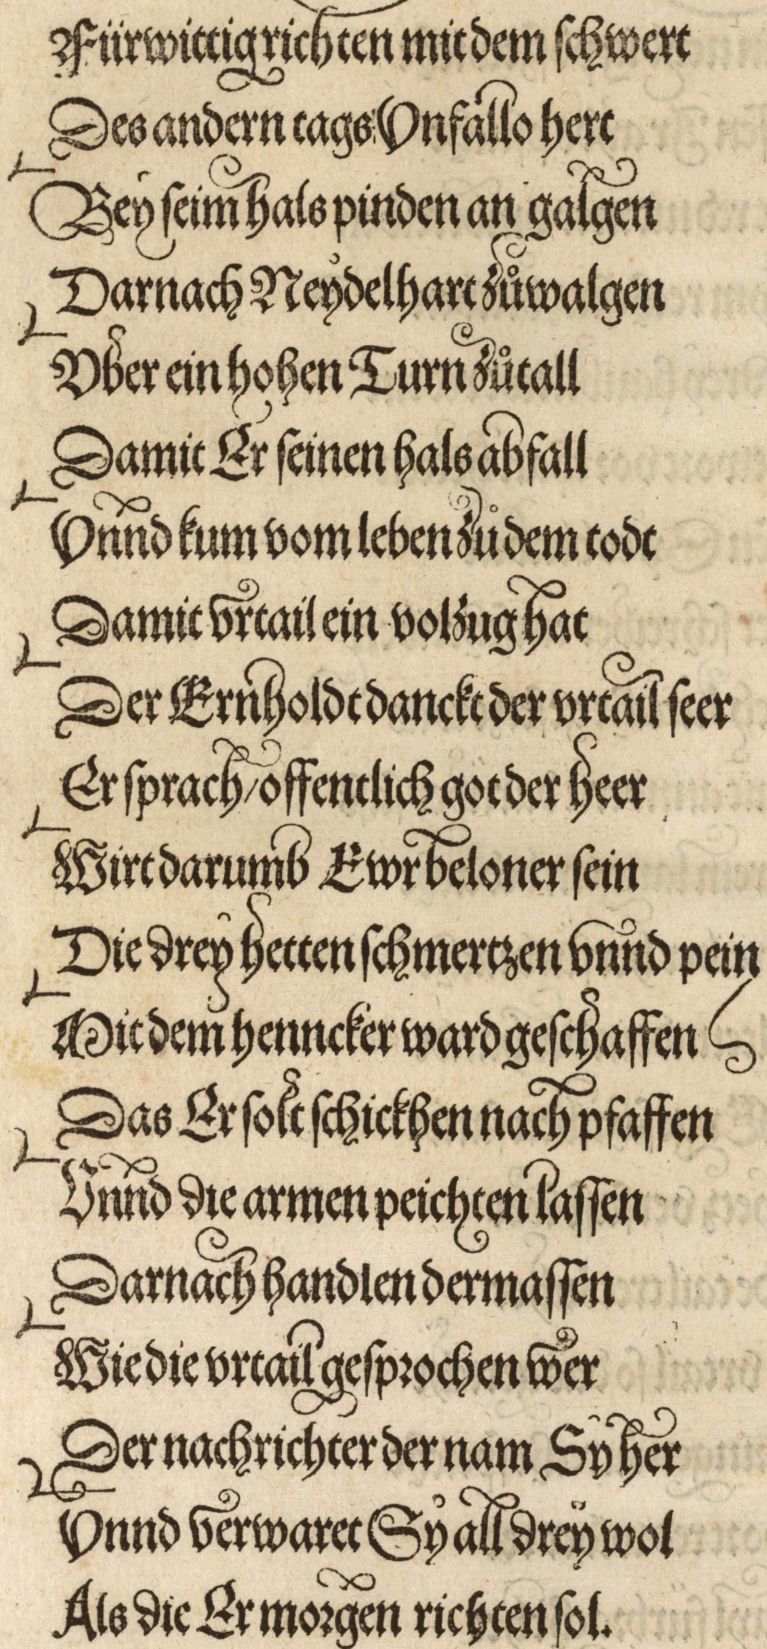 Fürwittig richten mit dem schwert
Des andern tags Vnfallo hert
Bey seim hals pinden an galgen
Darnach Neydelhart zůwalgen
Vber ein hohen Turn zůtall
Damit Er seinen hals abfall
Vnnd kum vom leben zů dem todt
Damit vrtail ein volzug hat
Der Ernholdt danckt der vrtail seer
Er sprach/offentlich got der heer
Wirt darumb Ewr beloner sein
Die drey hetten schmertzen vnnd pein
Mit dem henncker ward geschaffen
Das Er solt schickhen nach pfaffen
Vnnd die armen peichten lassen
Darnach handlen dermassen
Wie die vrtail gesprochen wer
Der nachrichter der nam Sy her
Vnnd verwaret Sy all drey wol
Als die Er morgen richten sol.